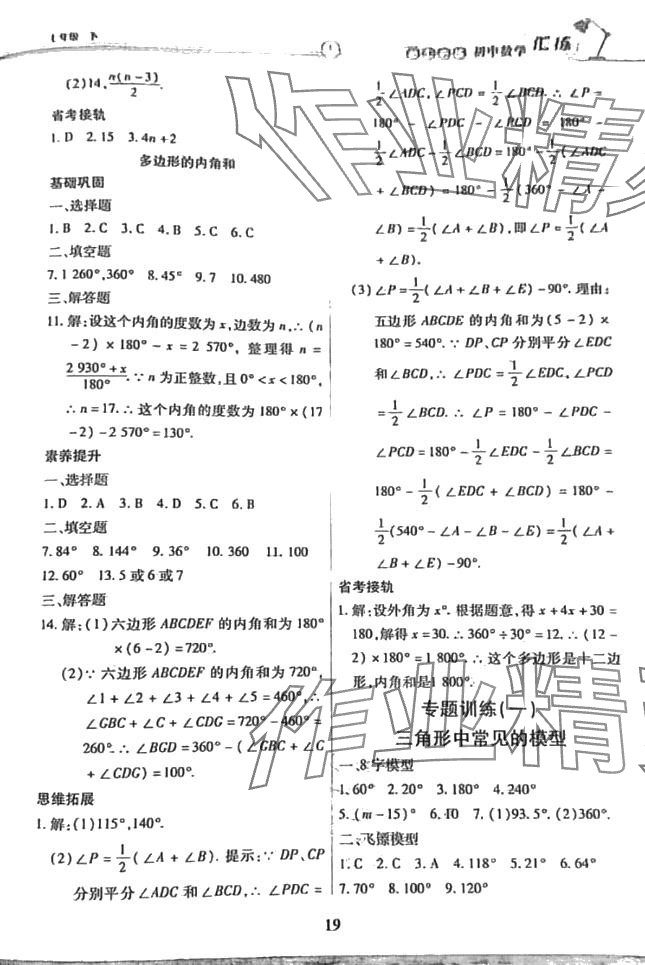 七年级 下
初中数学 汇练
(2)14,n(n-3)/2.
省考接轨
1.D 2.15 3.4n+2
多边形的内角和
基础巩固
一、选择题
1.B 2.C 3.C 4.B 5.C 6.C
二、填空题
7.1 260°,360° 8.45° 9.7 10.480
三、解答题
11.解:设这个内角的度数为x,边数为n,∴(n
-2)×180°-x=2 570°,整理得n=
(2 930°+x)/180°.∵n为正整数,且0°<x<180°,
∴n=17.∴这个内角的度数为180°×(17
-2)-2 570°=130°.
素养提升
一、选择题
1.D 2.A 3.D 4.C 5.C 6.B
二、填空题
7.84° 8.144° 9.36° 10.360 11.100
12.60° 13.5或6或7
三、解答题
14.解:(1)六边形ABCDEF的内角和为180°
×(6-2)=720°.
(2)∵六边形ABCDEF的内角和为720°,
∠1+∠2+∠3+∠4+∠5=460°,∴
∠GBC+∠C+∠CDG=720°-460°=
260°.∴∠BGD=360°-(∠GBC+∠C
+∠CDG)=100°.
思维拓展
1.解:(1)115°,140°.
(2)∠P=1/2(∠A+∠B).提示:∵DP、CP
分别平分∠ADC和∠BCD,∴∠PDC=
1/2∠ADC,∠PCD=1/2∠BCD.∴∠P=
180°-∠PDC-∠PCD=180°-
1/2∠ADC-1/2∠BCD=180°-1/2(∠ADC
+∠BCD)=180°-1/2(360°-∠A-
∠B)=1/2(∠A+∠B),即∠P=1/2(∠A
+∠B).
(3)∠P=1/2(∠A+∠B+∠E)-90°.理由:
五边形ABCDE的内角和为(5-2)×
180°=540°.∵DP、CP分别平分∠EDC
和∠BCD,∴∠PDC=1/2∠EDC,∠PCD
=1/2∠BCD.∴∠P=180°-∠PDC-
∠PCD=180°-1/2∠EDC-1/2∠BCD=
180°-1/2(∠EDC+∠BCD)=180°-
1/2(540°-∠A-∠B-∠E)=1/2(∠A+
∠B+∠E)-90°.
省考接轨
1.解:设外角为x°.根据题意,得x+4x+30=
180,解得x=30.∴360°÷30°=12.∴(12-
2)×180°=1 800°.∴这个多边形是十二边
形,内角和是1 800°.
专题训练(一)
三角形中常见的模型
一、8字模型
1.60° 2.20° 3.180° 4.240°
5.(m-15)° 6.10 7.(1)93.5° (2)360°.
二、飞镖模型
1.C 2.C 3.A 4.118° 5.21° 6.64°
7.70° 8.100° 9.120°
19
作业精灵
作业精灵